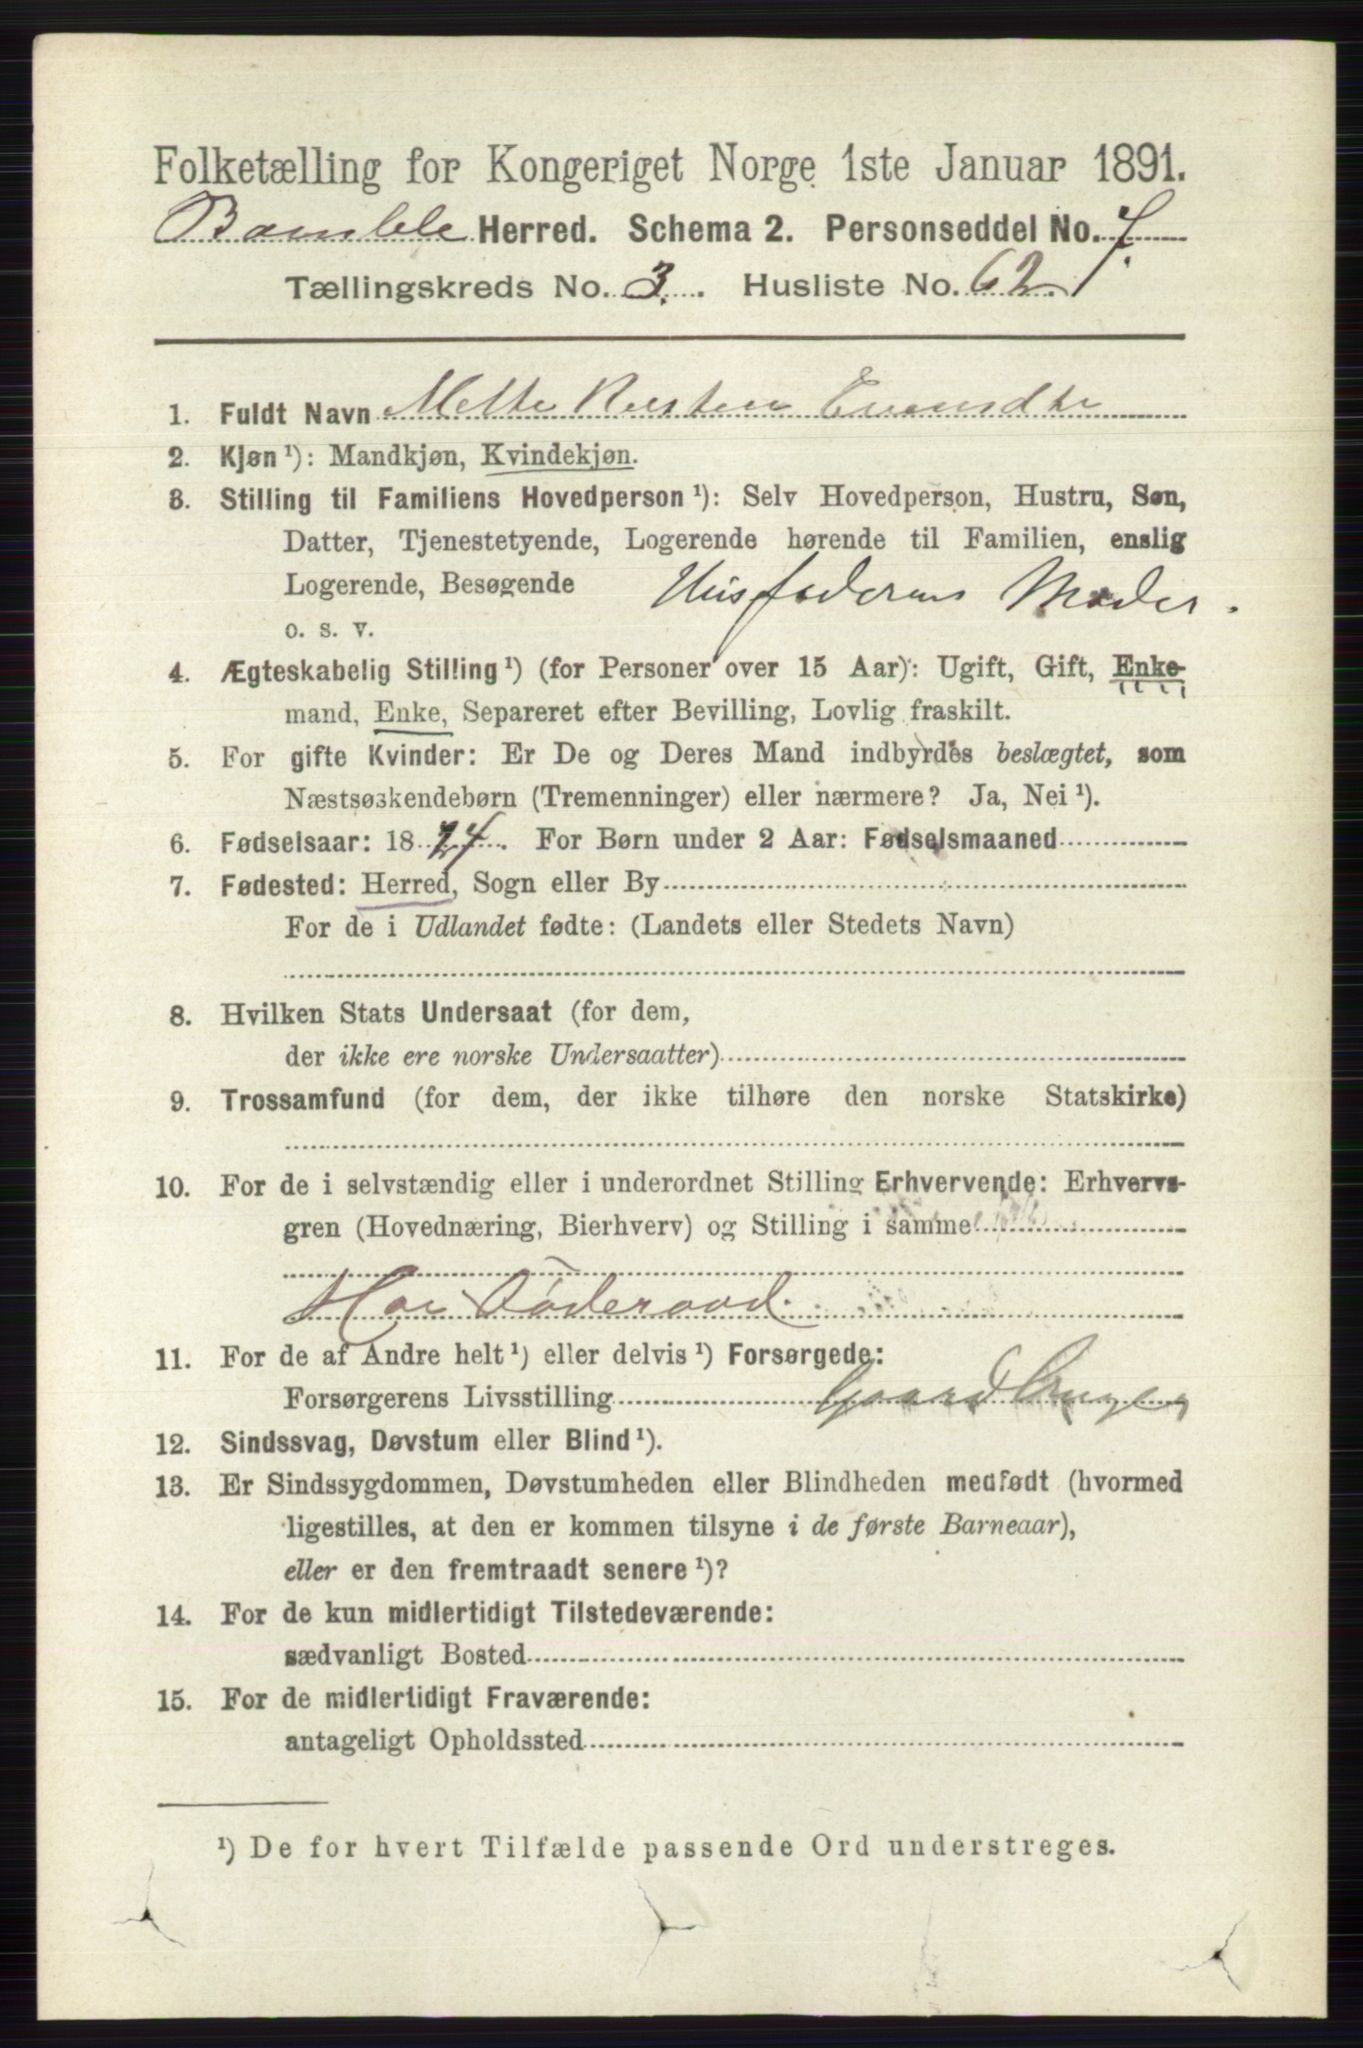 Folketælling for Kongeriget Norge 1ste Januar 1891.
Bamble Herred. Schema 2. Personseddel No. 7.
Tællingskreds No. 3. Husliste No. 62.
1. Fuldt Navn Mette Kirstine
2. Kjøn ¹): Mandkjøn, Kvindekjøn.
3. Stilling til Familiens Hovedperson ¹): Selv Hovedperson, Hustru, Søn,
Datter, Tjenestetyende, Logerende hørende til Familien, enslig
Logerende, Besøgende Husfaderens Moder.
o. s. v.
4. Ægteskabelig Stilling ¹) (for Personer over 15 Aar): Ugift, Gift, Enke-
mand, Enke, Separeret efter Bevilling, Lovlig fraskilt.
5. For gifte Kvinder: Er De og Deres Mand indbyrdes beslægtet, som
Næstsøskendebørn (Tremenninger) eller nærmere? Ja, Nei ¹).
6. Fødselsaar: 1824. For Børn under 2 Aar: Fødselsmaaned
7. Fødested: Herred, Sogn eller By
For de i Udlandet fødte: (Landets eller Stedets Navn)
8. Hvilken Stats Undersaat (for dem,
der ikke ere norske Undersaatter)
9. Trossamfund (for dem, der ikke tilhøre den norske Statskirke)
10. For de i selvstændig eller i underordnet Stilling Erhvervende: Erhvervs-
gren (Hovednæring, Bierhverv) og Stilling i samme
Har Föderaad.
11. For de af Andre helt ¹) eller delvis ¹) Forsørgede:
Forsørgerens Livsstilling Gaardbruger
12. Sindssvag, Døvstum eller Blind ¹).
13. Er Sindssygdommen, Døvstumheden eller Blindheden medfødt (hvormed
ligestilles, at den er kommen tilsyne i de første Barneaar),
eller er den fremtraadt senere ¹)?
14. For de kun midlertidigt Tilstedeværende:
sædvanligt Bosted
15. For de midlertidigt Fraværende:
antageligt Opholdssted
¹) De for hvert Tilfælde passende Ord understreges.